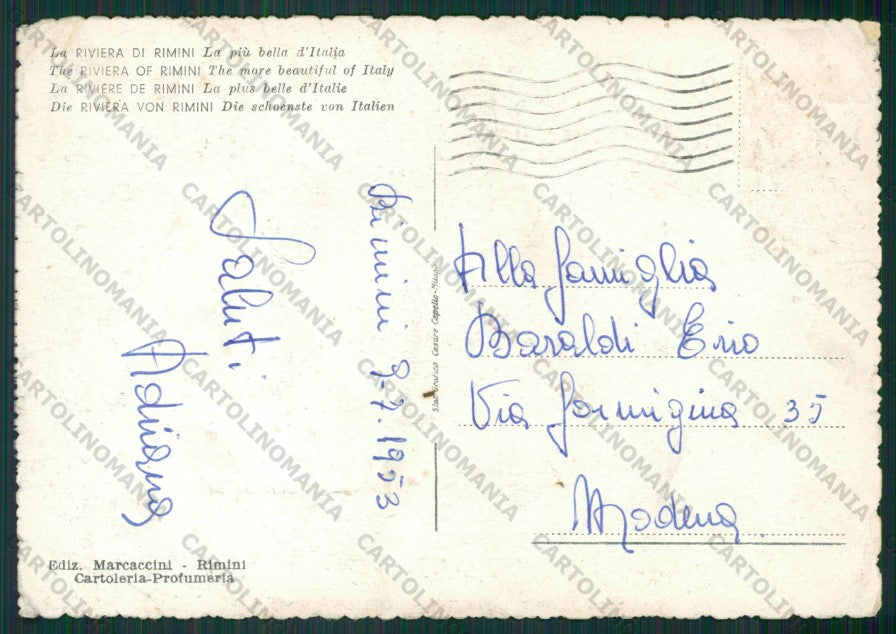 La RIVIERA DI RIMINI La più bella d'Italia
The RIVIERA OF RIMINI The more beautiful of Italy
La RIVIÈRE DE RIMINI La plus belle d'Italie
Die RIVIERA VON RIMINI Die schoenste von Italien
Rimini 9-7.1953
Saluti
Adriana
Alla famiglia
Baraldi Erio
Via formigina 35
Modena
Stab. Grafico Cesare Capello - Milano
Ediz. Marcaccini - Rimini
Cartoleria-Profumeria
CARTOLINOMANIA